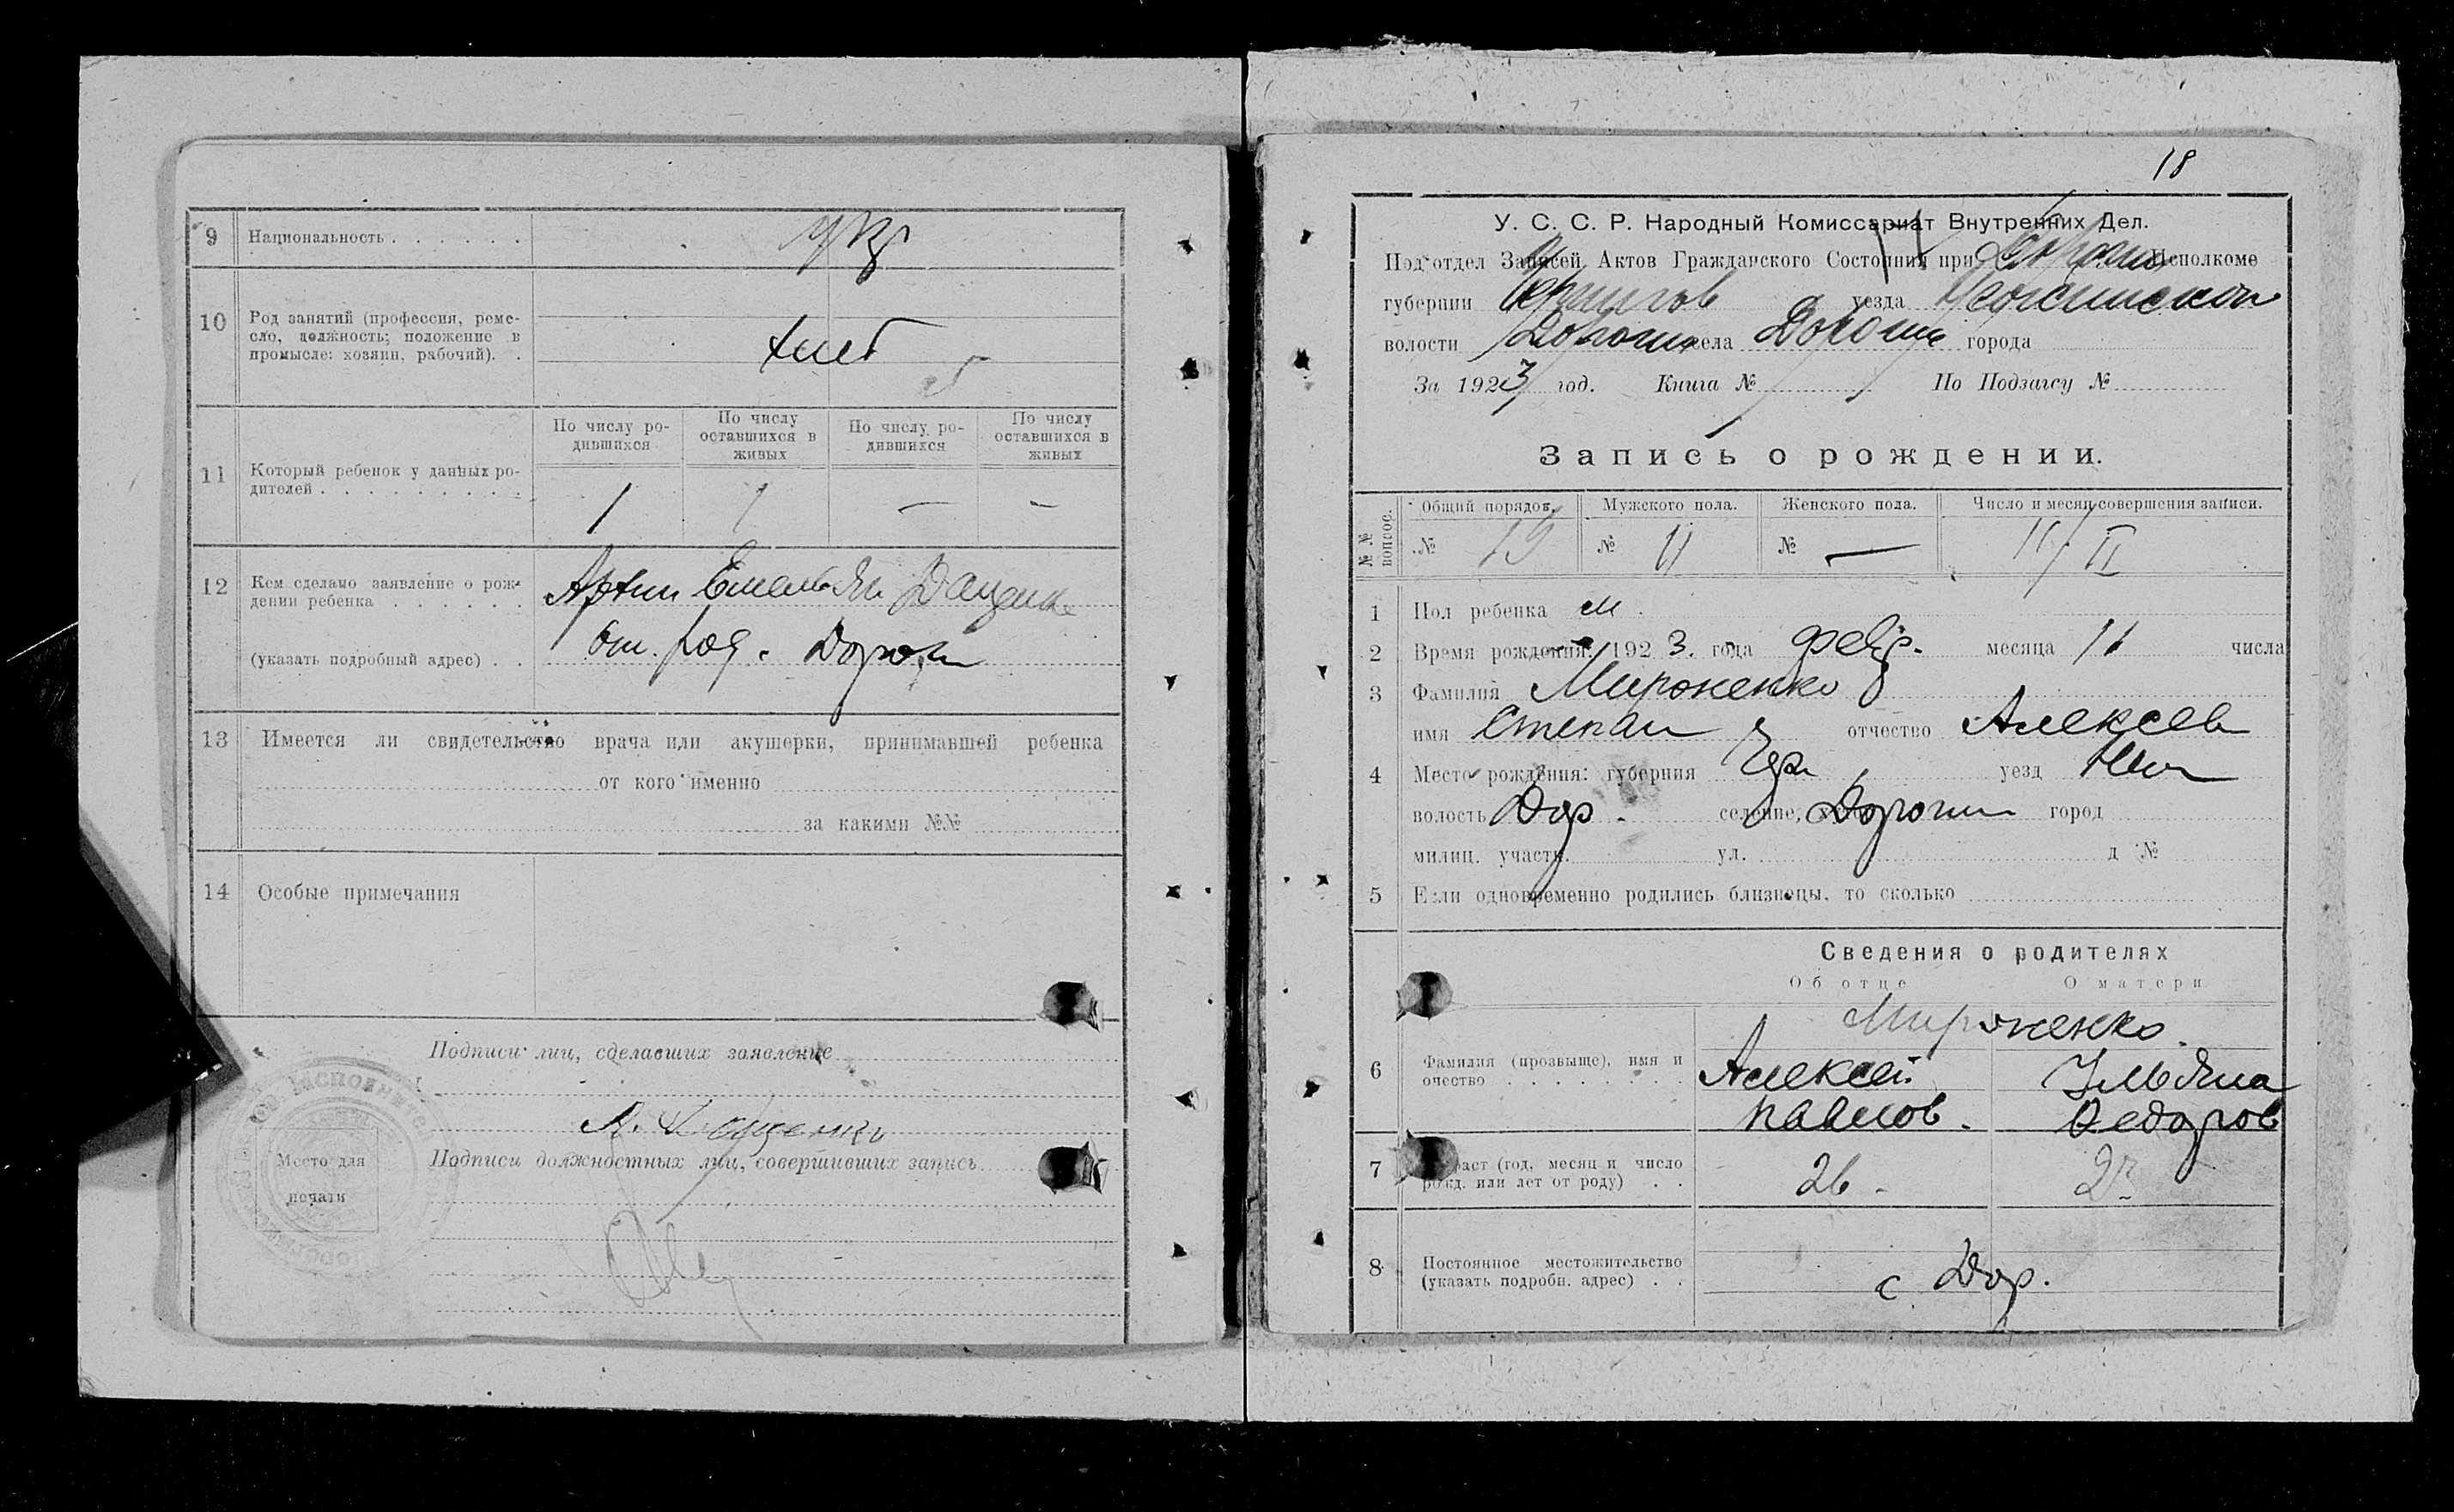 9 Национальность . . . . . . укр
10 Род занятий (профессия, реме-
сло, должность; положение в
промысле: хозяин, рабочий). . хлеб
По числу ро-
дившихся
По числу
оставшихся в
живых
По числу ро-
дившихся
По числу
оставшихся в
живых
11 Который ребенок у данных ро-
дителей . . . . . . . . . 1 1 — -
12 Кем сделано заявление о рож-
дении ребенка . . . . . .
(указать подробный адрес) . .
13 Имеется ли свидетельство врача или акушерки, принимавшей ребенка
от кого именно
за какими №№
14 Особые примечания
Подписи лиц, сделавших заявление
Подписи должностных лиц, совершивших запись
Место для
печати
18
У. С. С. Р. Народный Комиссариат Внутренних Дел.
Подотдел Записей Актов Гражданского Состояния при Исполкоме
губернии Чернигов уезда
волости села города
За 1923 год. Книга № По Подзагсу №
Запись о рождении.
№№ вопрос.
Общий порядов. Мужского пола. Женского пола. Число и месяц совершения записи.
№ 19 № 11 № — 11/II
1 Пол ребенка м.
2 Время рождения: 1923. года февр. месяца 11 числа
3 Фамилия Мироненко
имя Степан отчество Алексеев
4 Место рождения: губерния Чер уезд
волость Дор. селение, город
милиц. участк. ул. д №
5 Если одновременно родились близнецы, то сколько
Сведения о родителях
Об отце О матери
Мироненко
6 Фамилия (прозвыще), имя и
очество . . . . . . . .
Алексей Ульяна
Павлов. Федоров
7 раст (год, месяц и число
рожд. или лет от роду) . . 26.
8 Постоянное местожительство
(указать подробн. адрес) . . с. Дор.